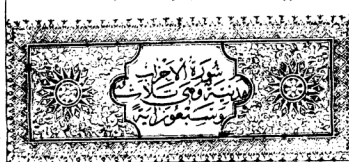 سُورَةُ الأَحْزَابِ
مَدَنِيَّة وَهِيَ ثَلَاث
وَسَبْعُونَ آيَة